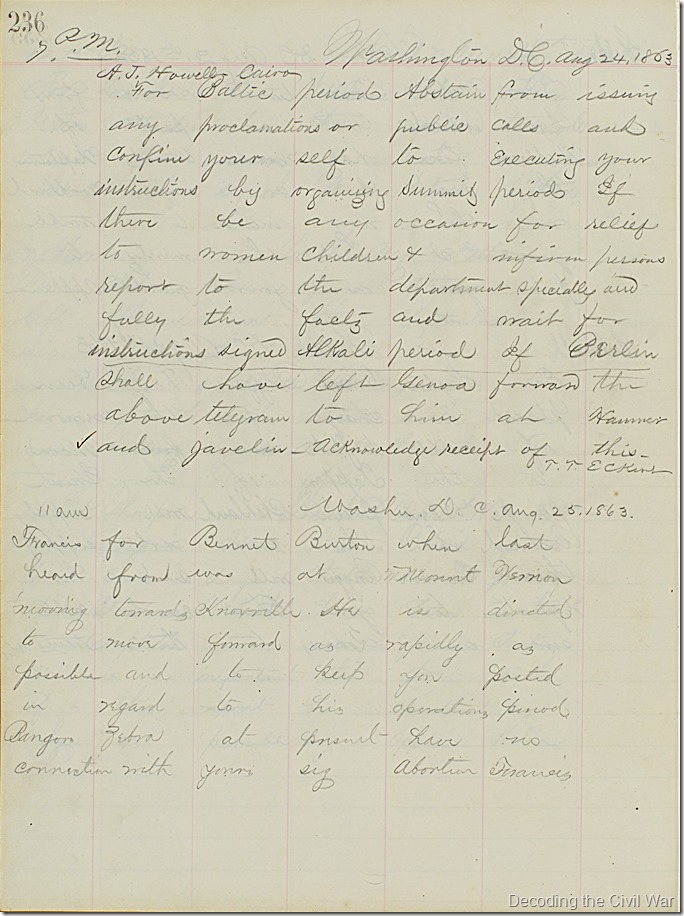 236
7 P.M. Washington D.C. Aug 24, 1863
A.T. Howell Cairo
For Baltic period Abstain from issuing
any proclamations or public calls and
Confine your self to Executing your
instructions by organizing Summit period If
there be any occasion for relief
to women children & infirm persons
report to the department specially and
fully the facts and wait for
instructions signed Alkali period If Berlin
shall have left Genoa forward the
above telegram to him at Hammer
✓ and javelin - Acknowledge receipt of this -
T. T. Eckert
11 am Washn. D. C. Aug. 25. 1863.
Francis for Bennet Burton when last
heard from was at Mount Vernon
moving towards Knoxville. He is directed
to move forward as rapidly as
possible and to keep you posted
in regard to his operations period
Bangor Zebra at present have no
connection with yours sig Abortion Francis
Decoding the Civil War